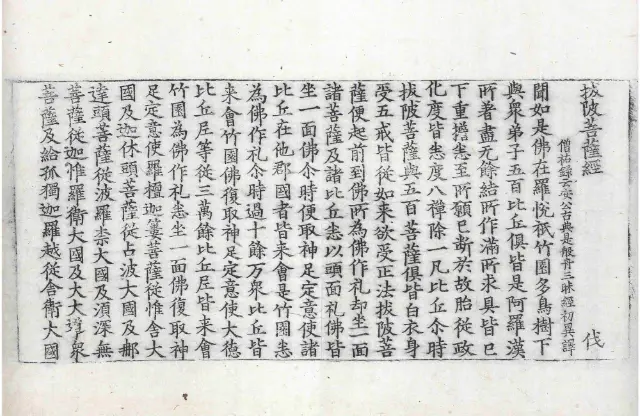 拔陂菩薩經 伐
僧祐錄云安公古典是般舟三昧經初異譯
聞如是佛在羅悅祇竹園多鳥樹下
與衆弟子五百比丘俱皆是阿羅漢
所著盡无餘結所作滿所求具皆已
下重擔悉至所願已斷於故胎從政
化度皆悉度八禪除一凡比丘尒時
拔陂菩薩與五百菩薩俱皆白衣身
受五戒皆從如來欲受正法拔陂菩
薩便起前到佛所爲佛作礼却坐一面
諸菩薩及諸比丘悉以頭面礼佛皆
坐一面佛尒時便取神足定意使諸
比丘在他郡國者皆來會是竹園悉
爲佛作礼尒時過十餘万衆比丘皆
來會竹園佛復取神足定意使大德
比丘尼等從三萬餘比丘尼皆來會
竹園爲佛作礼悉坐一面佛復取神
足定意使羅檀迦簍菩薩從惟舍大
國及迦休頭菩薩從占波大國及郍
達頭菩薩從波羅柰大國及須深無
菩薩從迦惟羅衛大國及大大導衆
菩薩及給孤獨迦羅越從舍衛大國